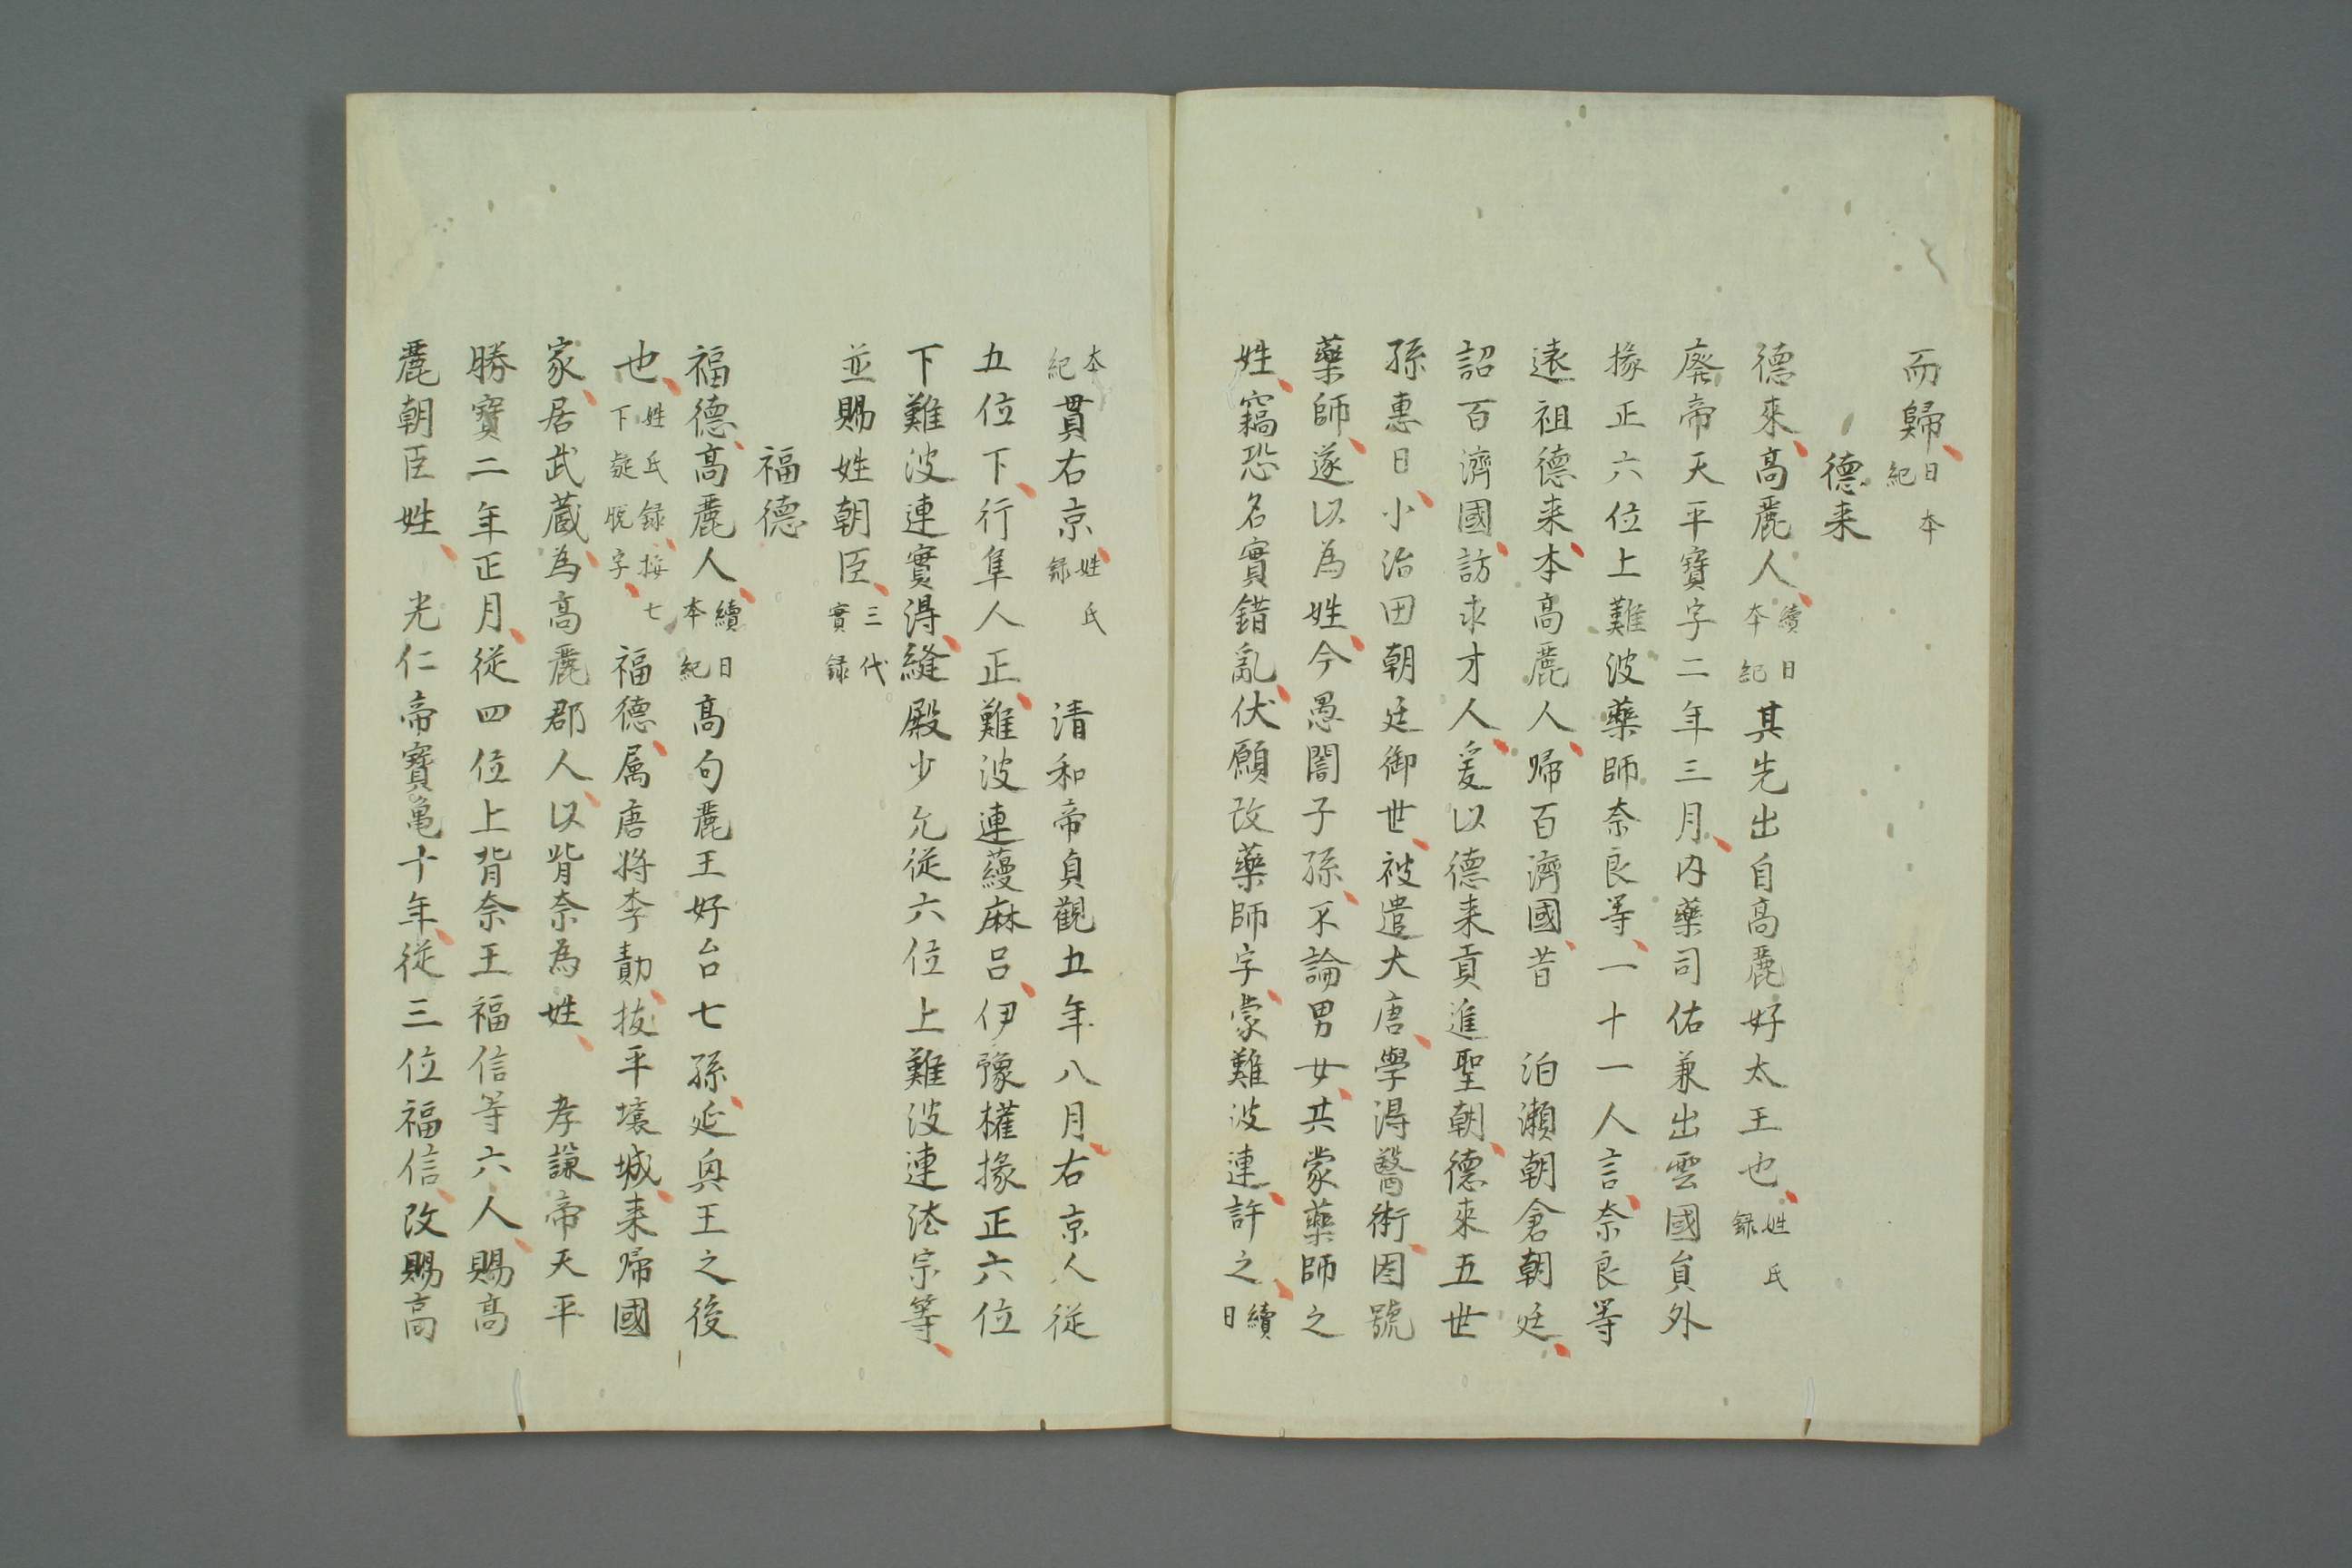 而歸日本紀
德来
德來高麗人續日本紀其先出自高麗好太王也姓氏録
廢帝天平寶字二年三月内藥司佑兼出雲國貟外
掾正六位上難波藥師奈良等一十一人言奈良等
遠祖德来本高麗人歸百濟國昔　泊瀬朝倉朝廷
詔百濟國訪求才人爰以德来貢進聖朝德來五世
孫惠日小治田朝廷御世被遣大唐學得醫術因號
藥師遂以為姓今愚闇子孫不論男女共蒙藥師之
姓竊恐名實錯亂伏願改藥師字蒙難波連許之續日
本紀貫右京姓氏録　清和帝貞觀五年八月右京人從
五位下行隼人正難波連蘰麻呂伊豫權掾正六位
下難波連實得縫殿少允従六位上難波連法宗等
並賜姓朝臣三代實録
福德
福德高麗人續日本紀高句麗王好台七孫延典王之後
也姓氏録按七下疑脱字福德属唐將李勣抜平壌城来帰國
家居武蔵為高麗郡人以背奈為姓　孝謙帝天平
勝寶二年正月従四位上背奈王福信等六人賜高
麗朝臣姓　光仁帝寶亀十年従三位福信改賜高